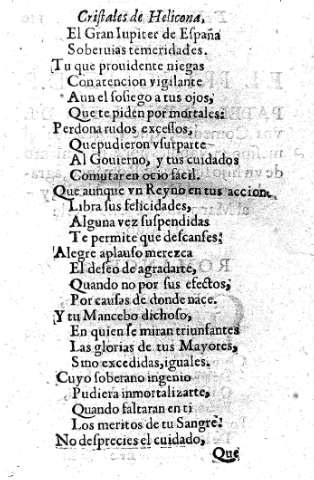 Cristales de Helicona,
El Gran Iupiter de España
Soberuias temeridades.
Tu que prouidente niegas
Con atencion vigilante
Aun el sosiego a tus ojos,
Que te piden por mortales:
Perdona rudos excessos,
Que pudieron vsurparte
Al Gouierno, y tus cuidados
Comutar en ocio facil.
Que aunque vn Reyno en tus accion,
Libra sus felicidades,
Alguna vez suspendidas
Te permite que descanses:
Alegre aplauso merezca
El deseo de agradarte,
Quando no por sus efectos,
Por causas de donde nace.
Y tu Mancebo dichoso,
En quien se miran triunfantes
Las glorias de tus Mayores,
Sino excedidas, iguales.
Cuyo soberano ingenio
Pudiera inmortalizarte,
Quando faltaran en ti
Los meritos de tu Sangre:
No desprecies el cuidado,
Que